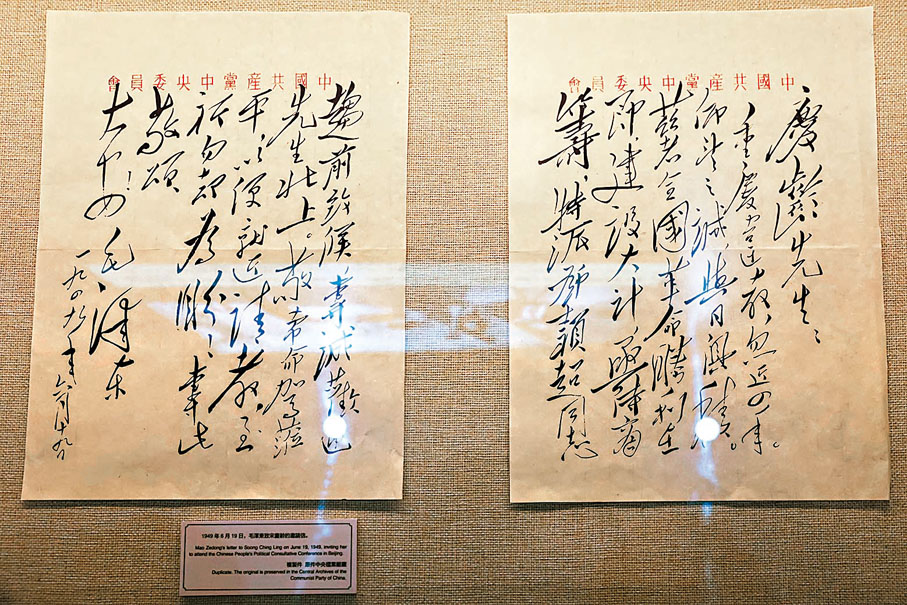 中國共產黨中央委員會
慶齡先生：
重慶違教，忽近四年。
仰望之誠，與日俱積。
茲者全國革命勝利在
即，建設大計，亟待商
籌，特派鄧穎超同志
中國共產黨中央委員會
趨前致候，專誠歡迎
先生北上。敬希命駕蒞
平，以便就近請教，至
祈勿却為盼！專此
敬頌
大安！
毛澤东
一九四九年六月十九日
1949 年 6 月 19 日，毛澤東致宋慶齡的邀請信。
Mao Zedong's letter to Soong Ching Ling on June 19, 1949, inviting her
to attend the Chinese People's Political Consultative Conference in Beijing.
複製件 原件中央檔案館藏
Duplicate. The original is preserved in the Central Archives of the
Communist Party of China.